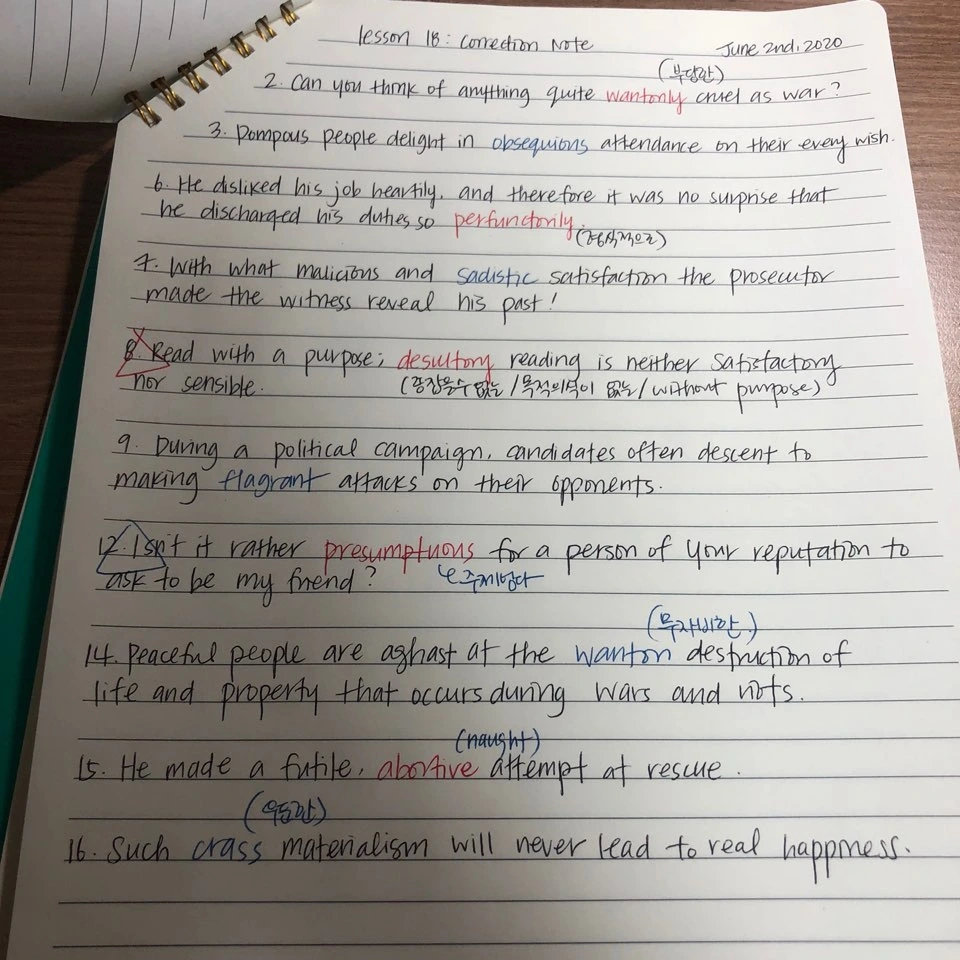 lesson 18: Correction Note
June 2nd, 2020
(부당한)
2. Can you think of anything quite wantonly cruel as war?
3. Pompous people delight in obsequious attendance on their every wish.
6. He disliked his job heartily, and therefore it was no surprise that
he discharged his duties so perfunctorily.
(형식적으로)
7. With what malicious and sadistic satisfaction the prosecutor
made the witness reveal his past!
8. Read with a purpose; desultory reading is neither satisfactory
nor sensible. (종잡을수 없는 / 목적의식이 없는 / without purpose)
9. During a political campaign, candidates often descent to
making flagrant attacks on their opponents.
12. Isn't it rather presumptuous for a person of your reputation to
ask to be my friend? 주제넘다
(무자비한)
14. Peaceful people are aghast at the wanton destruction of
life and property that occurs during wars and riots.
(naught)
15. He made a futile, abortive attempt at rescue.
(우둔한)
16. Such crass materialism will never lead to real happiness.